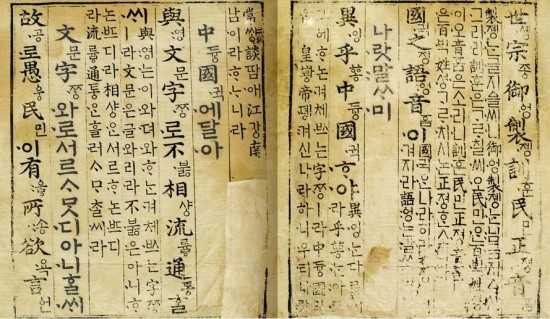 世솅宗종御엉製졩訓훈民민正졍音흠
製졩는글지ᅀᅳᆯ씨니御엉製졩는님금지ᅀᅳ샨
그리라訓훈은ᄀᆞᄅᆞ칠씨오民민ᄋᆞᆫ百ᄇᆡᆨ姓셩
이오音흠은소리니訓훈民민正졍音흠
은百ᄇᆡᆨ姓셩ᄀᆞᄅᆞ치시논正졍ᄒᆞᆫ소리라
國귁之징語엉音흠이
國귁ᄋᆞᆫ나라히라之징ᄂᆞᆫ입
겨지라語엉는말ᄊᆞ미라
나랏말ᄊᆞ미
異잉乎ᅘᅩᆼ中듀ᇰ國귁ᄒᆞ야
異잉ᄂᆞᆫ다ᄅᆞᆯ씨라乎ᅘᅩᆼᄂᆞᆫ아모그ᅌᅦ
ᄒᆞ논겨체ᄡᅳᄂᆞᆫ字ᄍᆞᆼㅣ라中듀ᇰ國귁ᄋᆞᆫ
皇황帝뎽겨신나라히니우리나랏
常썅談땀애江강南
남이라ᄒᆞᄂᆞ니라
中듀ᇰ國귁에달아
與영文문字ᄍᆞᆼ로不부ᇙ相샹流류ᇢ通토ᇰᄒᆞᆯ
ᄊᆡ
與영는이와뎌와ᄒᆞ논겨체ᄡᅳᄂᆞᆫ字ᄍᆞᆼ
ㅣ라文문은글와리라不부ᇙ은아니ᄒᆞ
논ᄠᅳ디라相샹ᄋᆞᆫ서르ᄒᆞ논ᄠᅳ디
라流류ᇢ通토ᇰᄋᆞᆫ흘러ᄉᆞᄆᆞᄎᆞᆯ씨라
文문字ᄍᆞᆼ와로서르ᄉᆞᄆᆞᆺ디아니ᄒᆞᆯᄊᆡ
故공로愚웅民민이有우ᇢ所송欲욕言언